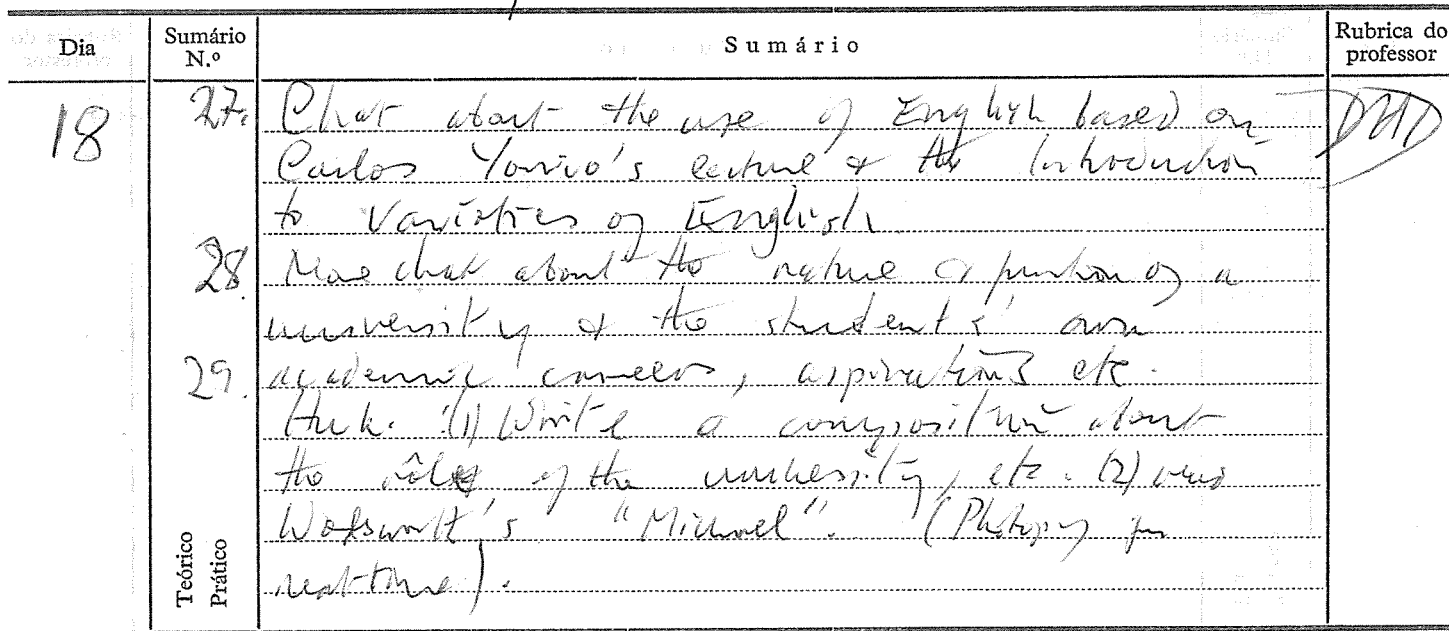 Dia
Sumário N.º
Sumário
Rubrica do professor
18
27. Chat about the use of English based on
Carlos Yorio's lecture & the Introduction
to Varieties of English.
28. More chat about the nature & function of a
university & the students' own
29. academic careers, aspirations etc.
H.w.k. (1) Write a composition about
the rôle of the university, etc. (2) read
Wordsworth's "Michael". (Photocopy for
next time).
Teórico
Prático